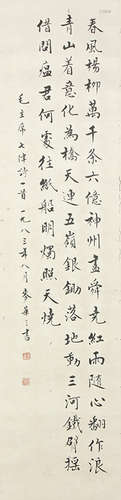 春風楊柳萬千条六億神州盡舜堯紅雨随心翻作浪
青山着意化為橋天連五嶺銀鋤落地動三河鐵臂搖
借問瘟君何處往紙船明燭照天燒
毛主席七律詩一首一九八三年八月麥華三書